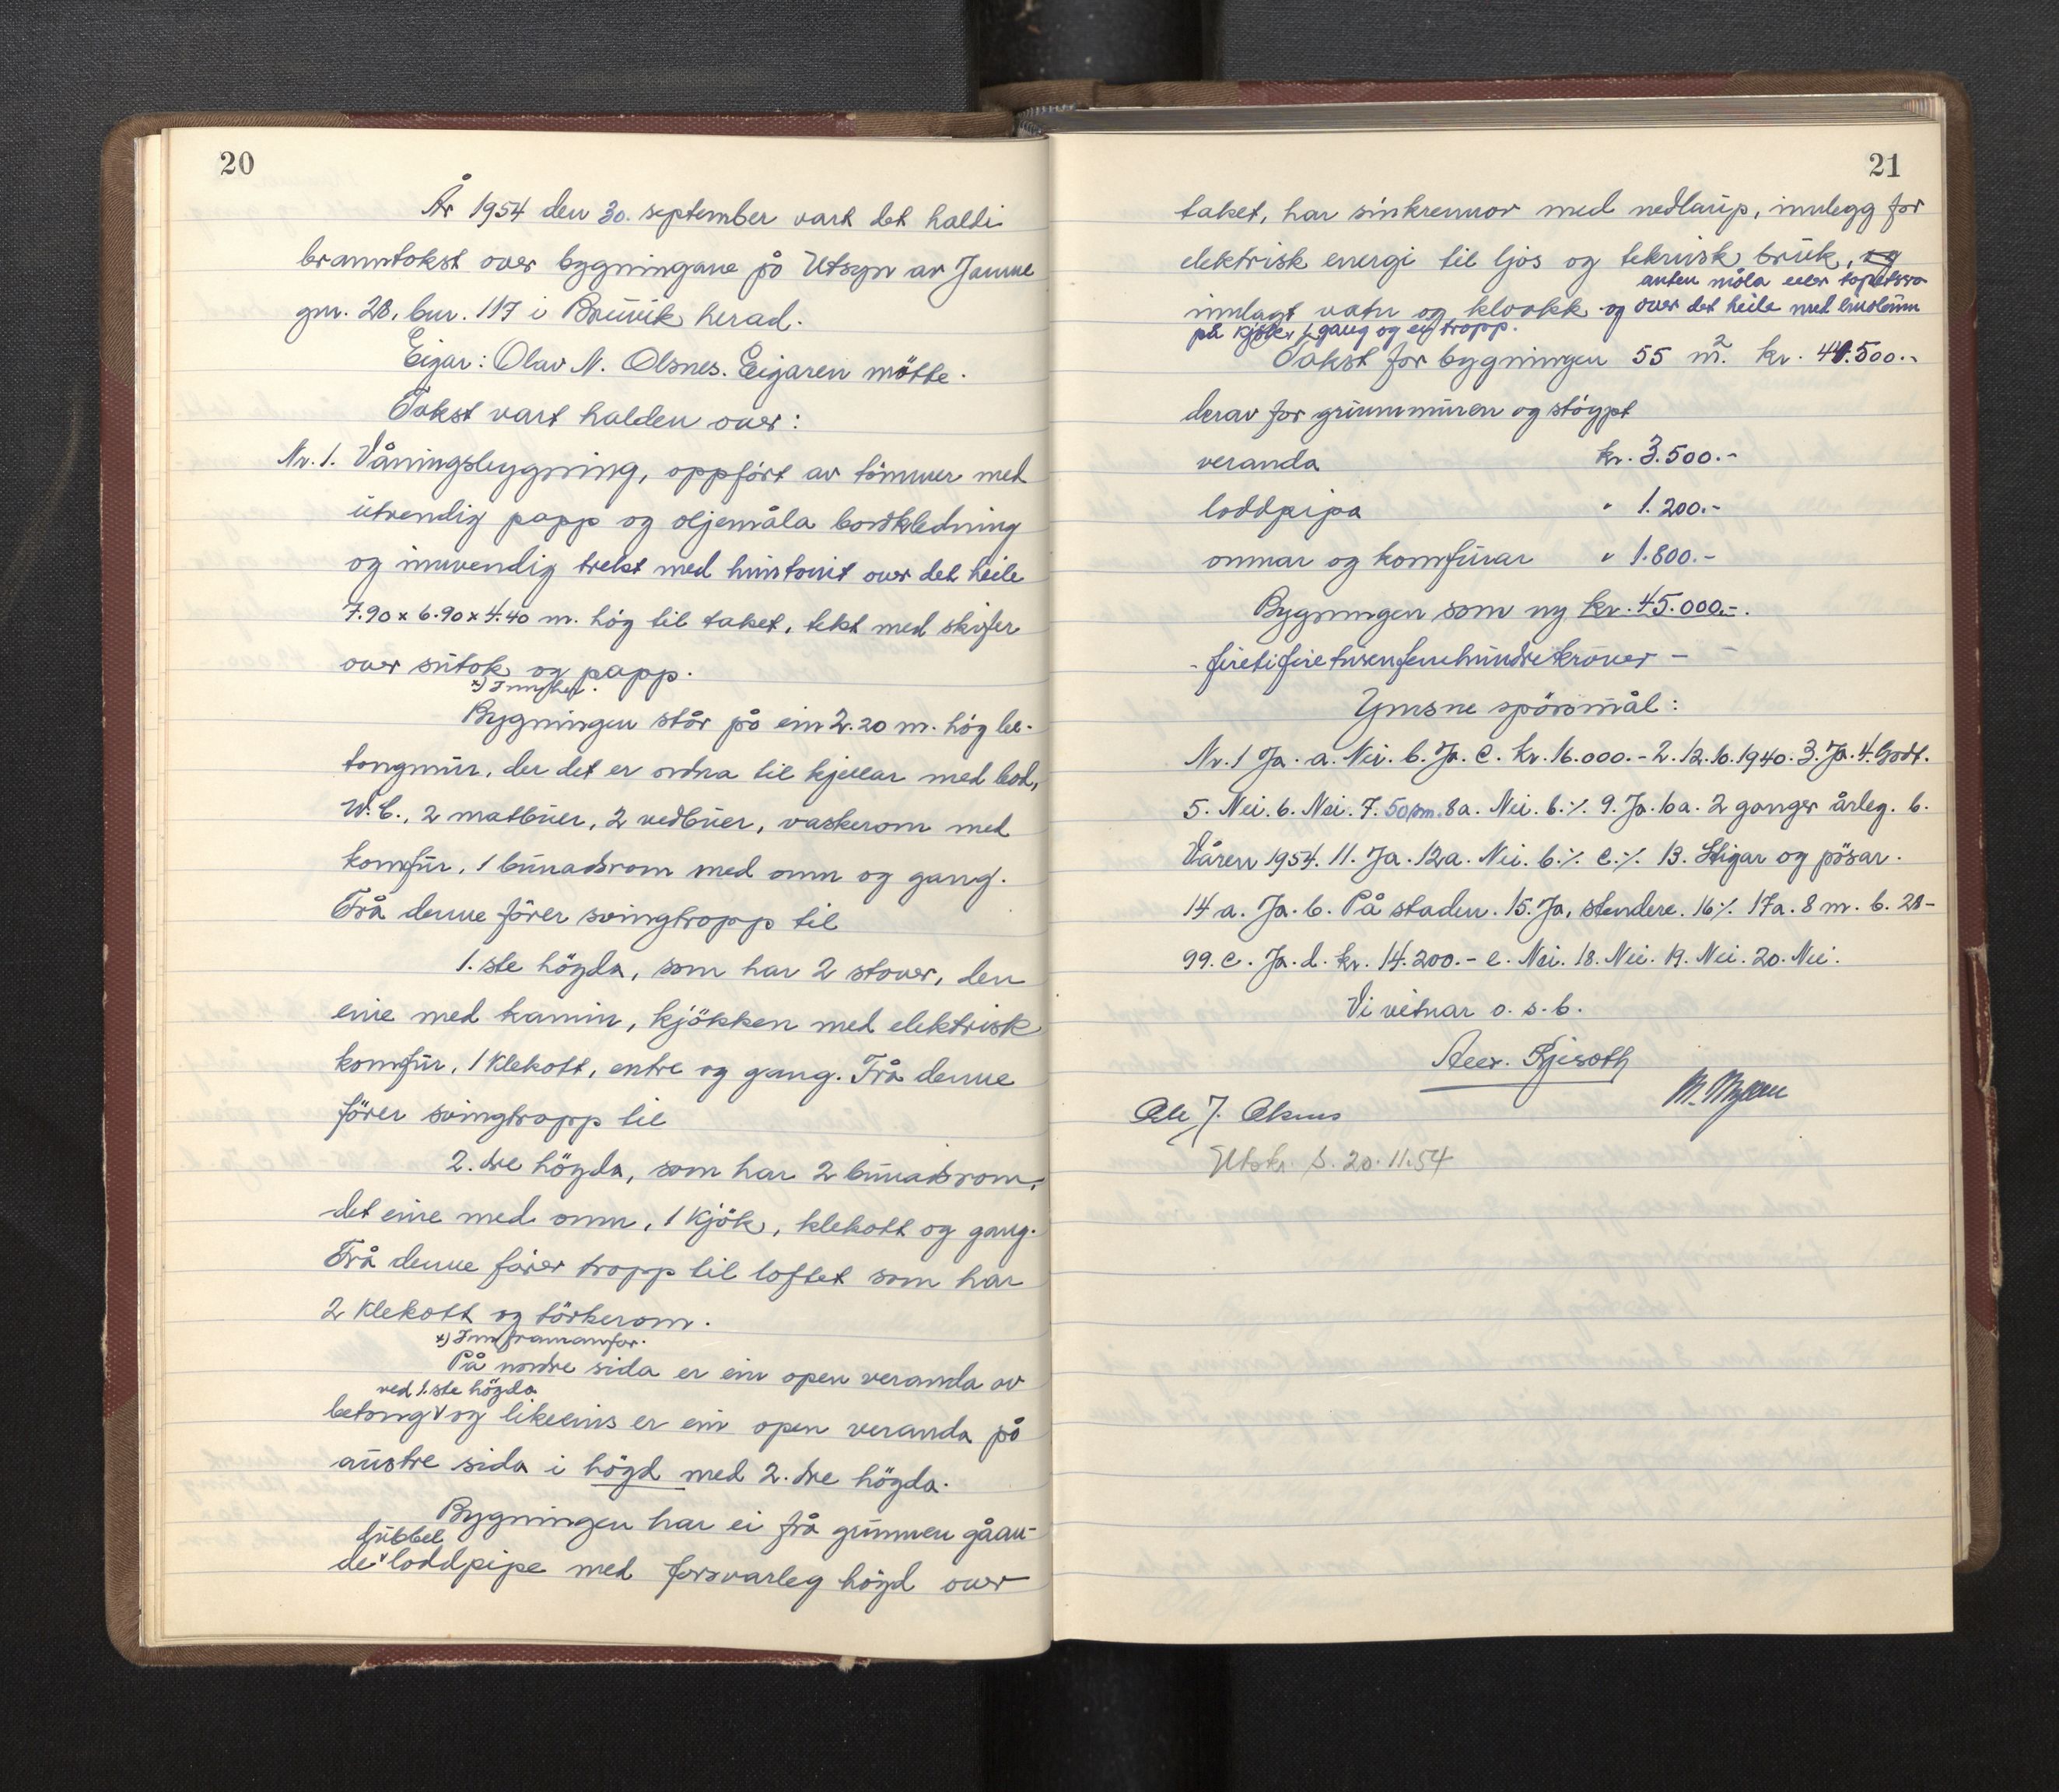 20
År 1954 den 30. september vart det haldi
branntakst over bygningane på Utsyn av Janne
gnr. 28, bnr. 117 i Bruvik herad.
Eigar: Olav N. Olsnes. Eigaren møtte.
Takst vart halden over:
Nr. 1. Våningsbygning, oppført av tømmer med
utvendig papp og oljemåla bordkledning
og innvendig trekt med huntonit over det heile
7.90 x 6.90 x 4.40 m. høg til taket, tekt med skifer
over sutak og papp.
x) Innskot.
Bygningen står på ein 2.20 m. høg be-
tongmur, der det er ordna til kjellar med bod,
W.C., 2 matbuer, 2 vedbuer, vaskerom med
komfur, 1 bunadsrom med omn og gang.
Frå denne fører svingtropp til
1.ste høgda, som har 2 stover, den
eine med kamin, kjøkken med elektrisk
komfur, 1 klekott, entre og gang. Frå denne
fører svingtropp til
2.dre høgda, som har 2 bunadsrom,
det eine med omn, 1 kjøk, klekott og gang.
Frå denne fører tropp til loftet som har
2 klekott og tørkerom.
x) Innframanfor.
På nordre sida er ein open veranda av
ved 1.ste høgda
betong v og likeeins er ein open veranda på
austre sida i høgd med 2.dre høgda.
Bygningen har ei frå grunnen gåan-
dubbel
de v loddpipe med forsvarleg høgd over
21
taket, har sinkrennor med nedlaup, innlegg for
elektrisk energi til ljos og teknisk bruk, og
anten måla eller tapetsera
innlagt vatn og kloakk og over det heile med linoleum
på kjøk, gang og ein tropp.
Takst for bygningen 55 m². kr. 44.500.-
derav for grunnmuren og støypt
veranda kr. 3.500.-
loddpipa " 1.200.-
omnar og komfurar " 1.800.-
Bygningen som ny kr. 45.000.-.
- firetifiretusenfemhundrekroner -
Ymsne spørsmål:
Nr. 1 Ja. a. Nei. b. Ja. c. kr. 16.000.- 2. 12.10.1940. 3. Ja. 4. Godt.
5. Nei. 6. Nei. 7. 50 m. 8a. Nei. b. ٪ 9. Ja. 10a. 2 ganger årleg. b.
Våren 1954. 11. Ja. 12a. Nei. b. ٪ c. ٪ 13. Stigar og pøsar.
14 a. Ja. b. På staden. 15. Ja, stendere. 16 ٪ 17a. 8 m. b. 28-
99. c. Ja. d. kr. 14.200.- e. Nei. 18. Nei. 19. Nei. 20. Nei.
Vi vitnar o. s. b.
M. Myllen
Utskr. d. 20.11.54